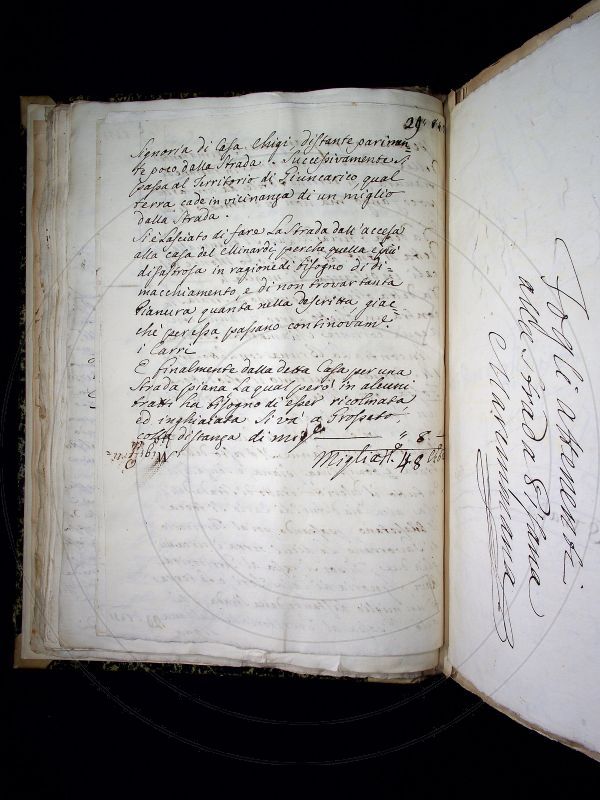 29
Signoria di Casa Chigi, distante parimen-
te poco dalla Strada. Successivamente si
passa al Territorio di Giuncarico qual
terra cade in vicinanza di un miglio
dalla Strada.
Si è lasciato di fare la Strada dall'accesa
alla casa del Minardi, perche quella è più
disastrosa in ragione di bisogno di di-
macchiamento e di non trovar tanta
Pianura, quanta nella descritta giac-
che per essa passano continovam.e
i Carri
E finalmente dalla detta Casa per una
Strada piana la qual però in alcuni
tratti ha bisogno di esser ricolmata
ed inghiaiata si và a Grosseto,
colla distanza di mig.a 8
Miglia 48
Fogli attenenti
alla Strada
Maremmana